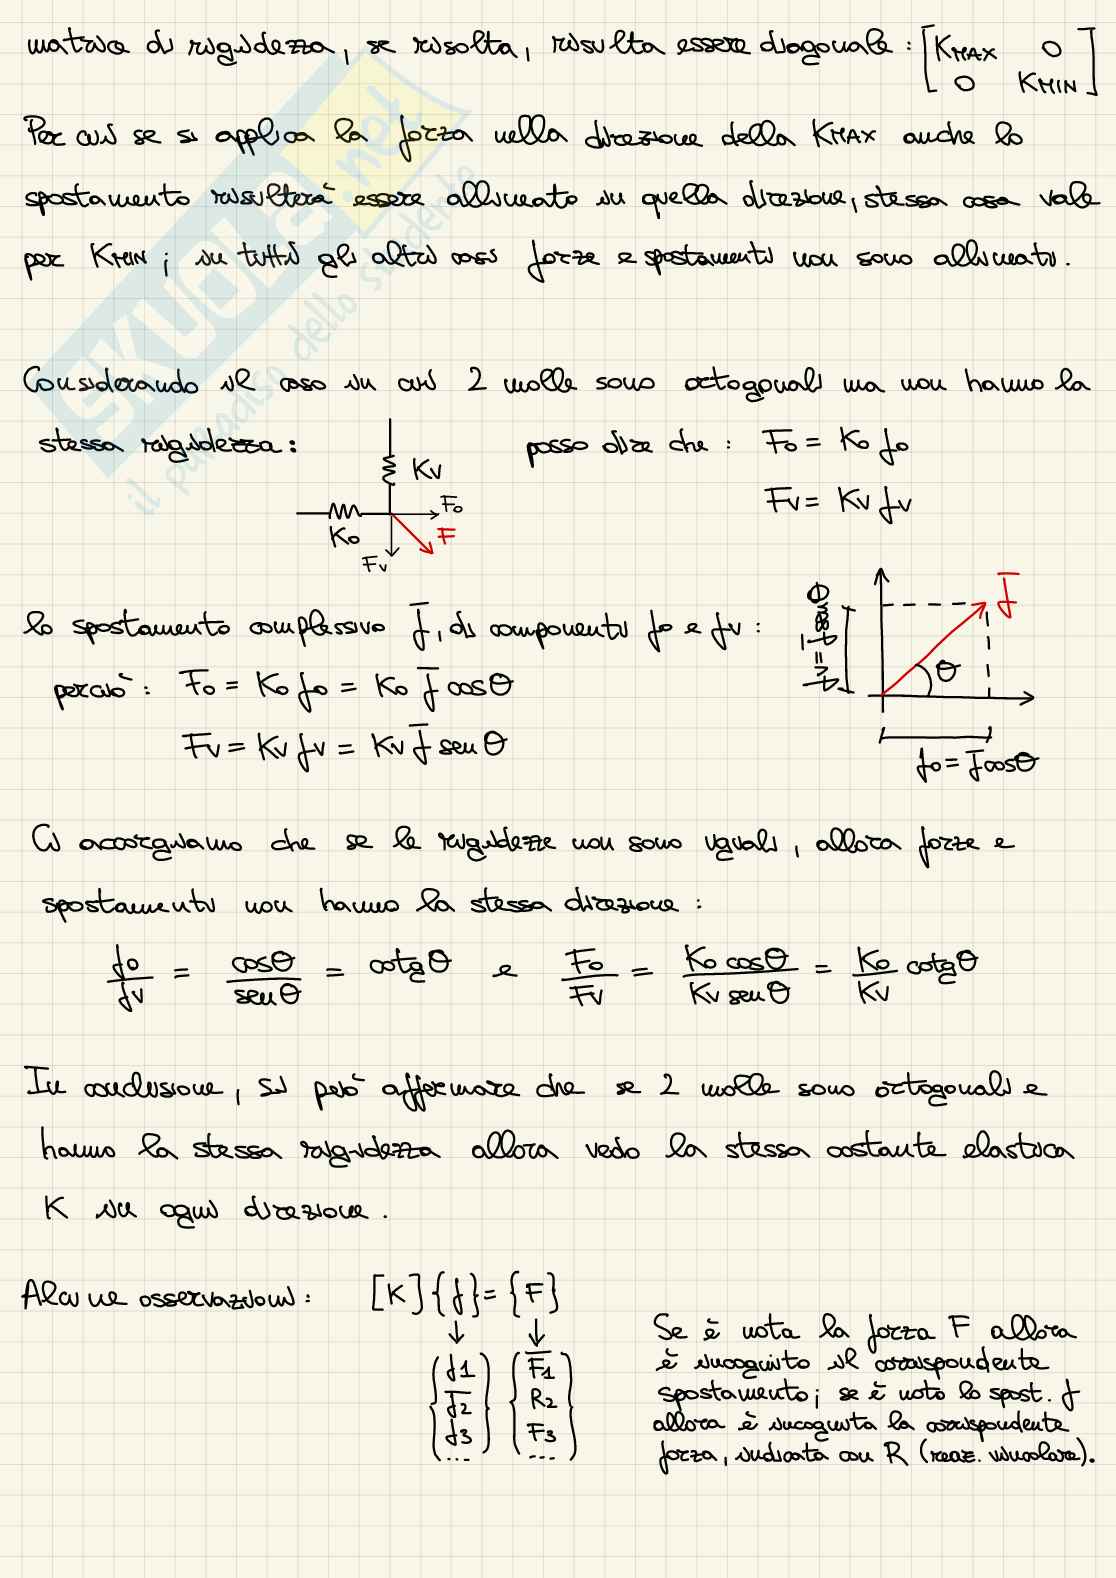 matrice di rigidezza, se risolta, risulta essere diagonale: [KMAX 0
0 KMIN]
Per cui se si applica la forza nella direzione della KMAX anche lo
spostamento risulterà essere allineato in quella direzione, stessa cosa vale
per KMIN; in tutti gli altri casi forze e spostamenti non sono allineati.
Considerando il caso in cui 2 molle sono ortogonali ma non hanno la
stessa rigidezza:
posso dire che: Fo = Ko fo
Fv = Kv fv
Kv
Fo
Ko
F
Fv
lo spostamento complessivo f̅, di componenti fo e fv:
perciò: Fo = Ko fo = Ko f̅ cosθ
Fv = Kv fv = Kv f̅ senθ
f̅
fv = f̅ senθ
θ
fo = f̅ cosθ
Ci accorgiamo che se le rigidezze non sono uguali, allora forze e
spostamenti non hanno la stessa direzione:
fo/fv = cosθ/senθ = cotgθ e Fo/Fv = Ko cosθ/Kv senθ = Ko/Kv cotgθ
In conclusione, si può affermare che se 2 molle sono ortogonali e
hanno la stessa rigidezza allora vedo la stessa costante elastica
K in ogni direzione.
Alcune osservazioni: [K]{f}={F}
{f1 f̅2 f3 ...} {F̅1 R2 F3 ...}
Se è nota la forza F allora
è incognito il corrispondente
spostamento; se è noto lo spost. f
allora è incognita la corrispondente
forza, indicata con R (reaz. vincolare).
SKUOLA.net
il paradiso dello studente